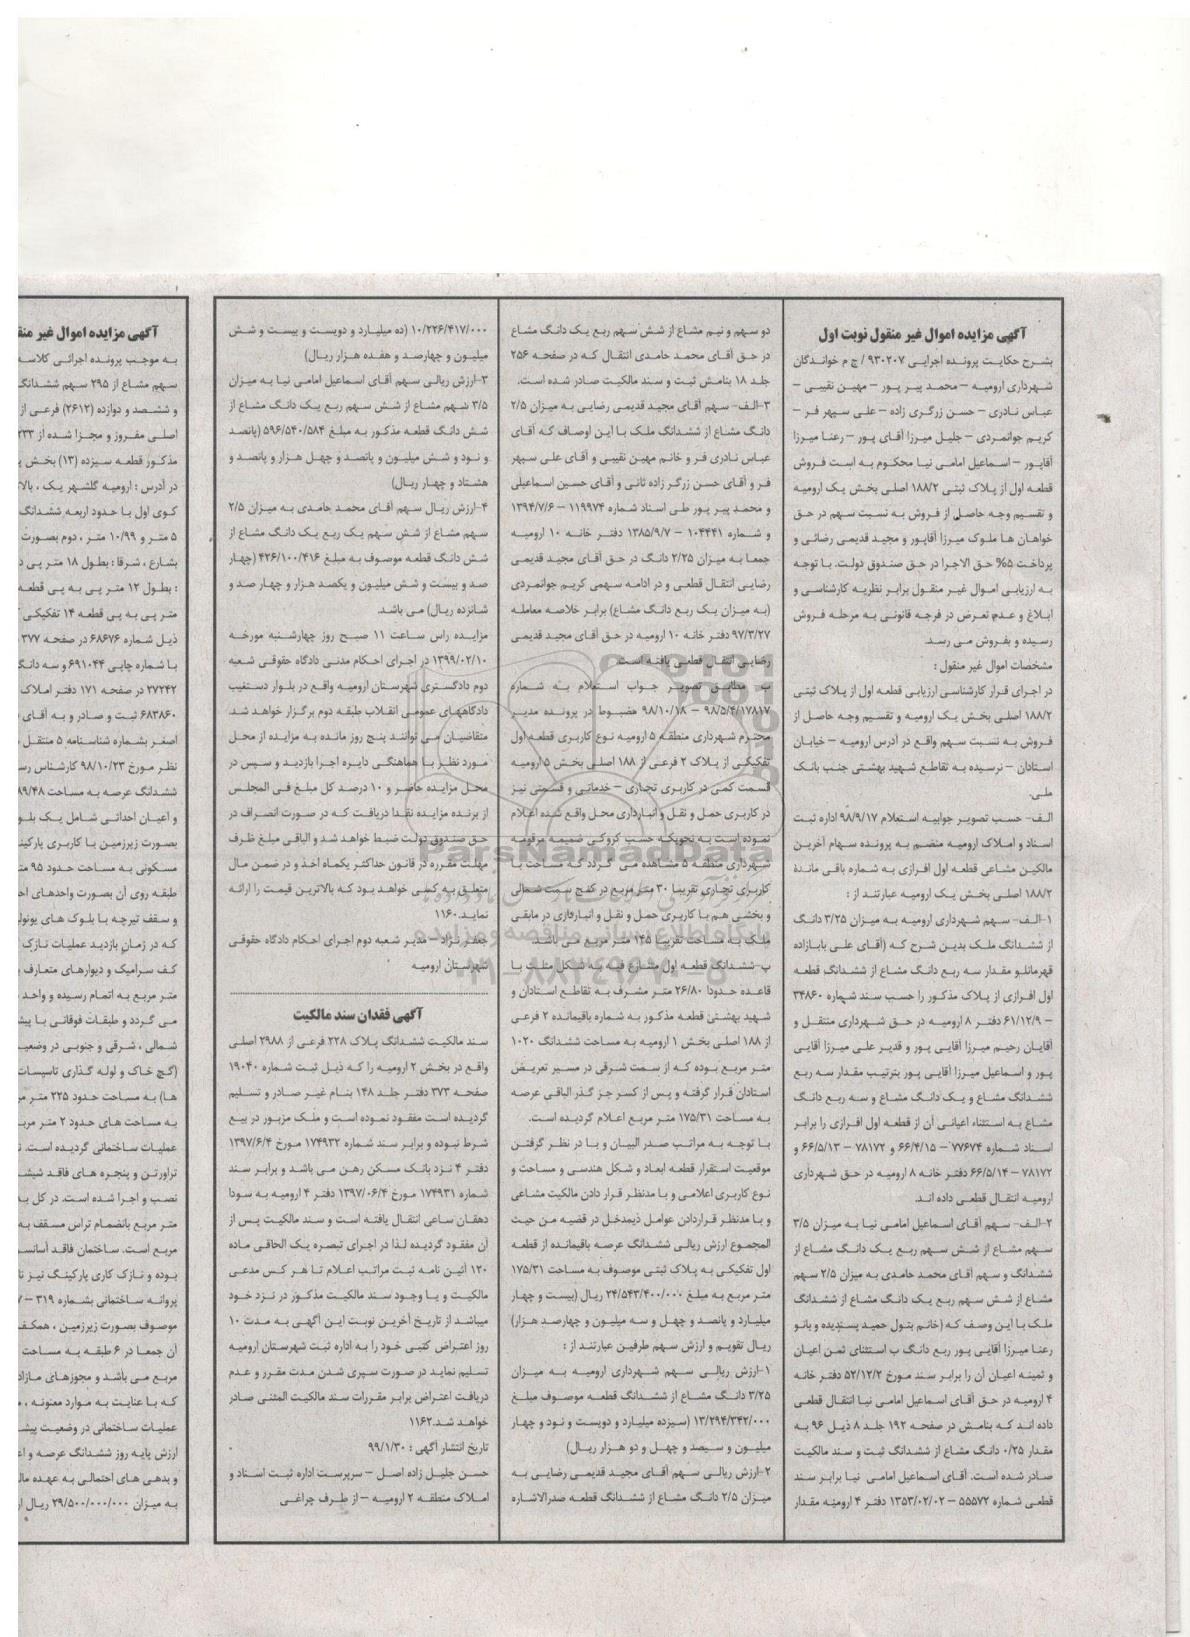 آگهی مزایده اموال غیر منقول نوبت اول
بشرح حکایت پرونده اجرایی ۹۳۰۲۰۷ / ج م خواندگان
شهرداری ارومیه – محمد پیر پور – مهین نقیبی –
عباس نادری – حسن زرگری زاده – علی سپهر فر –
کریم جوانمردی – جلیل میرزا آقای پور – رعنا میرزا
آقاپور – اسماعیل امامی نیا محکوم به است فروش
قطعه اول از پلاک ثبتی ۱۸۸/۲ اصلی بخش یک ارومیه
و تقسیم وجه حاصل از فروش به نسبت سهم در حق
خواهان ها ملوک میرزا آقاپور و مجید قدیمی رضائی و
پرداخت ۵% حق الاجرا در حق صندوق دولت. با توجه
به ارزیابی اموال غیر منقول برابر نظریه کارشناسی و
ابلاغ و عدم تعرض در فرجه قانونی به مرحله فروش
رسیده و بفروش می رسد.
مشخصات اموال غیر منقول :
در اجرای قرار کارشناسی ارزیابی قطعه اول از پلاک ثبتی
۱۸۸/۲ اصلی بخش یک ارومیه و تقسیم وجه حاصل از
فروش به نسبت سهم واقع در آدرس ارومیه – خیابان
استادان – نرسیده به تقاطع شهید بهشتی جنب بانک
ملی.
الف- حسب تصویر جوابیه استعلام ۹۸/۹/۱۷ اداره ثبت
اسناد و املاک ارومیه منضم به پرونده سهام آخرین
مالکین مشاعی قطعه اول افرازی به شماره باقی ماندۀ
۱۸۸/۲ اصلی بخش یک ارومیه عبارتند از :
۱-الف- سهم شهرداری ارومیه به میزان ۳/۲۵ دانگ
از ششدانگ ملک بدین شرح که (آقای علی بابازاده
قهرمانلو مقدار سه ربع دانگ مشاع از ششدانگ قطعه
اول افرازی از پلاک مذکور را حسب سند شماره ۳۴۸۶۰
– ۶۱/۱۲/۹ دفتر ۸ ارومیه در حق شهرداری منتقل و
آقایان رحیم میرزا آقایی پور و قدیر علی میرزا آقایی
پور و اسماعیل میرزا آقایی پور بترتیب مقدار سه ربع
ششدانگ مشاع و یک دانگ مشاع و سه ربع دانگ
مشاع به استثناء اعیانی آن از قطعه اول افرازی را برابر
اسناد شماره ۷۷۶۷۴ – ۶۶/۴/۱۵ و ۷۸۱۷۲ – ۶۶/۵/۱۳ و
۷۸۱۷۲ – ۶۶/۵/۱۴ دفتر خانه ۸ ارومیه در حق شهرداری
ارومیه انتقال قطعی داده اند.
۲-الف- سهم آقای اسماعیل امامی نیا به میزان ۳/۵
سهم مشاع از شش سهم ربع یک دانگ مشاع از
ششدانگ و سهم آقای محمد حامدی به میزان ۲/۵ سهم
مشاع از شش سهم ربع یک دانگ مشاع از ششدانگ
ملک با این وصف که (خانم بتول حمید پسندیده و بانو
رعنا میرزا آقایی پور ربع دانگ ب استثنای ثمن اعیان
و ثمینه اعیان آن را برابر سند مورخ ۵۲/۱۲/۲ دفتر خانه
۴ ارومیه در حق آقای اسماعیل امامی نیا انتقال قطعی
داده اند که بنامش در صفحه ۱۹۲ جلد ۸ ذیل ۹۶ به
مقدار ۰/۲۵ دانگ مشاع از ششدانگ ثبت و سند مالکیت
صادر شده است. آقای اسماعیل امامی نیا برابر سند
قطعی شماره ۵۵۵۷۲ – ۱۳۵۳/۰۲/۰۲ دفتر ۴ ارومیه مقدار
دو سهم و نیم مشاع از شش سهم ربع یک دانگ مشاع
در حق آقای محمد حامدی انتقال که در صفحه ۲۵۶
جلد ۱۸ بنامش ثبت و سند مالکیت صادر شده است.
۳-الف- سهم آقای مجید قدیمی رضایی به میزان ۲/۵
دانگ مشاع از ششدانگ ملک با این اوصاف که آقای
عباس نادری فر و خانم مهین نقیبی و آقای علی سپهر
فر و آقای حسن زرگر زاده ثانی و آقای حسین اسماعیلی
و محمد پیر پور طی اسناد شماره ۱۱۹۹۷۴ – ۱۳۹۴/۷/۶
و شماره ۱۰۴۴۴۱ – ۱۳۸۵/۹/۷ دفتر خانه ۱۰ ارومیه
جمعا به میزان ۲/۲۵ دانگ در حق آقای مجید قدیمی
رضایی انتقال قطعی و در ادامه سهمی کریم جوانمردی
(به میزان یک ربع دانگ مشاع) برابر خلاصه معامله
۹۷/۳/۲۷ دفتر خانه ۱۰ ارومیه در حق آقای مجید قدیمی
رضایی انتقال قطعی یافته است.
ب- مطابق تصویر جواب استعلام به شماره
۹۸/۵/۴/۱۷۸۱۷ – ۹۸/۱۰/۱۸ مضبوط در پرونده مدیر
محترم شهرداری منطقه ۵ ارومیه نوع کاربری قطعه اول
تفکیکی از پلاک ۲ فرعی از ۱۸۸ اصلی بخش ۵ ارومیه
قسمت کمی در کاربری تجاری – خدماتی و قسمتی نیز
در کاربری حمل و نقل و انبارداری محل واقع شده اعلام
نموده است به نحویکه حسب کروکی ضمیمه مرقومه
شهرداری منطقه ۵ مشاهده می گردد که مساحت با
کاربری تجاری تقریبا ۳۰ متر مربع در کنج سمت شمالی
و بخشی هم با کاربری حمل و نقل و انبارداری در مابقی
ملک به مساحت تقریبا ۱۴۵ متر مربع می باشد.
پ-ششدانگ قطعه اول مشارع فیه به شکل مثلث با
قاعده حدودا ۲۶/۸۰ متر مشرف به تقاطع استادان و
شهید بهشتی قطعه مذکور به شماره باقیمانده ۲ فرعی
از ۱۸۸ اصلی بخش ۱ ارومیه به مساحت ششدانگ ۱۰۲۰
متر مربع بوده که از سمت شرقی در مسیر تعریض
استادان قرار گرفته و پس از کسر جز گذر الباقی عرصه
به مساحت ۱۷۵/۳۱ متر مربع اعلام گردیده است.
با توجه به مراتب صدر البیان و با در نظر گرفتن
موقعیت استقرار قطعه ابعاد و شکل هندسی و مساحت و
نوع کاربری اعلامی و با مدنظر قرار دادن مالکیت مشاعی
و با مدنظر قراردادن عوامل ذیمدخل در قضیه من حیث
المجموع ارزش ریالی ششدانگ عرصه باقیمانده از قطعه
اول تفکیکی به پلاک ثبتی موصوف به مساحت ۱۷۵/۳۱
متر مربع به مبلغ ۲۴/۵۴۳/۴۰۰/۰۰۰ ریال (بیست و چهار
میلیارد و پانصد و چهل و سه میلیون و چهارصد هزار)
ریال تقویم و ارزش سهم طرفین عبارتند از :
۱-ارزش ریالی سهم شهرداری ارومیه به میزان
۳/۲۵ دانگ مشاع از ششدانگ قطعه موصوف مبلغ
۱۳/۲۹۴/۳۴۲/۰۰۰ (سیزده میلیارد و دویست و نود و چهار
میلیون و سیصد و چهل و دو هزار ریال)
۲-ارزش ریالی سهم آقای مجید قدیمی رضایی به
میزان ۲/۵ دانگ مشاع از ششدانگ قطعه صدرالاشاره
۱۰/۲۲۶/۴۱۷/۰۰۰ (ده میلیارد و دویست و بیست و شش
میلیون و چهارصد و هفده هزار ریال)
۳-ارزش ریالی سهم آقای اسماعیل امامی نیا به میزان
۳/۵ سهم مشاع از شش سهم ربع یک دانگ مشاع از
شش دانگ قطعه مذکور به مبلغ ۵۹۶/۵۴۰/۵۸۴ (پانصد
و نود و شش میلیون و پانصد و چهل هزار و پانصد و
هشتاد و چهار ریال)
۴-ارزش ریال سهم آقای محمد حامدی به میزان ۲/۵
سهم مشاع از شش سهم یک ربع یک دانگ مشاع از
شش دانگ قطعه موصوف به مبلغ ۴۲۶/۱۰۰/۴۱۶ (چهار
صد و بیست و شش میلیون و یکصد هزار و چهار صد و
شانزده ریال) می باشد.
مزایده راس ساعت ۱۱ صبح روز چهارشنبه مورخه
۱۳۹۹/۰۲/۱۰ در اجرای احکام مدنی دادگاه حقوقی شعبه
دوم دادگستری شهرستان ارومیه واقع در بلوار دستغیب
دادگاههای عمومی انقلاب طبقه دوم برگزار خواهد شد.
متقاضیان می توانند پنج روز مانده به مزایده از محل
مورد نظر با هماهنگی دایره اجرا بازدید و سپس در
محل مزایده حاضر و ۱۰ درصد کل مبلغ فی المجلس
از برنده مزایده نقدا دریافت که در صورت انصراف در
حق صندوق دولت ضبط خواهد شد و الباقی مبلغ ظرف
مهلت مقرره در قانون حداکثر یکماه اخذ و در ضمن مال
متعلق به کسی خواهد بود که بالاترین قیمت را ارائه
نماید.۱۱۶۰
جعفر نژاد – مدیر شعبه دوم اجرای احکام دادگاه حقوقی
شهرستان ارومیه
آگهی فقدان سند مالکیت
سند مالکیت ششدانگ پلاک ۲۲۸ فرعی از ۲۹۸۸ اصلی
واقع در بخش ۲ ارومیه را که ذیل ثبت شماره ۱۹۰۴۰
صفحه ۳۷۳ دفتر جلد ۱۴۸ بنام غیر صادر و تسلیم
گردیده است مفقود نموده است و ملک مزبور در بیع
شرط نبوده و برابر سند شماره ۱۷۴۹۳۲ مورخ ۱۳۹۷/۶/۴
دفتر ۴ نزد بانک مسکن رهن می باشد و برابر سند
شماره ۱۷۴۹۳۱ مورخ ۱۳۹۷/۰۶/۴ دفتر ۴ ارومیه به سودا
دهقان ساعی انتقال یافته است و سند مالکیت پس از
آن مفقود گردیده لذا در اجرای تبصره یک الحاقی ماده
۱۲۰ آئین نامه ثبت مراتب اعلام تا هر کس مدعی
مالکیت و یا وجود سند مالکیت مذکور در نزد خود
میباشد از تاریخ آخرین نوبت این آگهی به مدت ۱۰
روز اعتراض کتبی خود را به اداره ثبت شهرستان ارومیه
تسلیم نماید در صورت سپری شدن مدت مقرر و عدم
دریافت اعتراض برابر مقررات سند مالکیت المثنی صادر
خواهد شد.۱۱۶۲
تاریخ انتشار آگهی : ۹۹/۱/۳۰
حسن جلیل زاده اصل – سرپرست اداره ثبت اسناد و
املاک منطقه ۲ ارومیه – از طرف چراغی
آگهی مزایده اموال غیر
به موجب پرونده اجرائی کلاسه
سهم مشاع از ۲۹۵ سهم ششدانگ
و ششصد و دوازده (۲۶۱۲) فرعی از
اصلی مفروز و مجزا شده از
مذکور قطعه سیزده (۱۳) بخش
در آدرس : ارومیه گلشهر یک ، بالا
کوی اول با حدود اربعه ششدانگ
۵ متر و ۱۰/۹۹ متر ، دوم بصورت
بشارع ، شرقا : بطول ۱۸ متر پی
: بطول ۱۲ متر پی به پی قطعه
متر پی به پی قطعه ۱۴ تفکیکی
ذیل شماره ۶۸۶۷۶ در صفحه ۳۷۷
با شماره چاپی ۶۹۱۰۴۴ و سه دانگ
۲۷۲۴۲ در صفحه ۱۷۱ دفتر املاک
۶۸۳۸۶۰ ثبت و صادر و به آقای
اصغر بشماره شناسنامه ۵ منتقل
نظر مورخ ۹۸/۱۰/۲۳ کارشناس
ششدانگ عرصه به مساحت
و اعیان احداثی شامل یک
بصورت زیرزمین با کاربری
مسکونی به مساحت حدود ۹۵
طبقه روی آن بصورت واحدهای
و سقف تیرچه با بلوک های
که در زمان بازدید عملیات نازک
کف سرامیک و دیوارهای متعارف
متر مربع به اتمام رسیده و واحد
می گردد و طبقات فوقانی با
شمالی ، شرقی و جنوبی در
(گچ خاک و لوله گذاری تاسیسات
ها) به مساحت حدود ۲۲۵ متر
به مساحت های حدود ۲ متر
عملیات ساختمانی گردیده است.
تراورتن و پنجره های فاقد
نصب و اجرا شده است. در کل
متر مربع بانضمام تراس مسقف به
مربع است. ساختمان فاقد
بوده و نازک کاری پارکینگ نیز
پروانه ساختمانی بشماره ۳۱۹ –
موصوف بصورت زیرزمین ، همکف
آن جمعا در ۶ طبقه به مساحت
مربع می باشد و مجوزهای مازاد
که با عنایت به موارد معنونه ،
عملیات ساختمانی در وضعیت
ارزش پایه روز ششدانگ عرصه و
و بدهی های احتمالی به عهده
به میزان ۲۹/۵۰۰/۰۰۰/۰۰۰ ریال
ParsNamadData
پایگاه اطلاع رسانی مناقصه و مزایده
۰۲۱-۸۸۳۴۹۶۷۰-۵